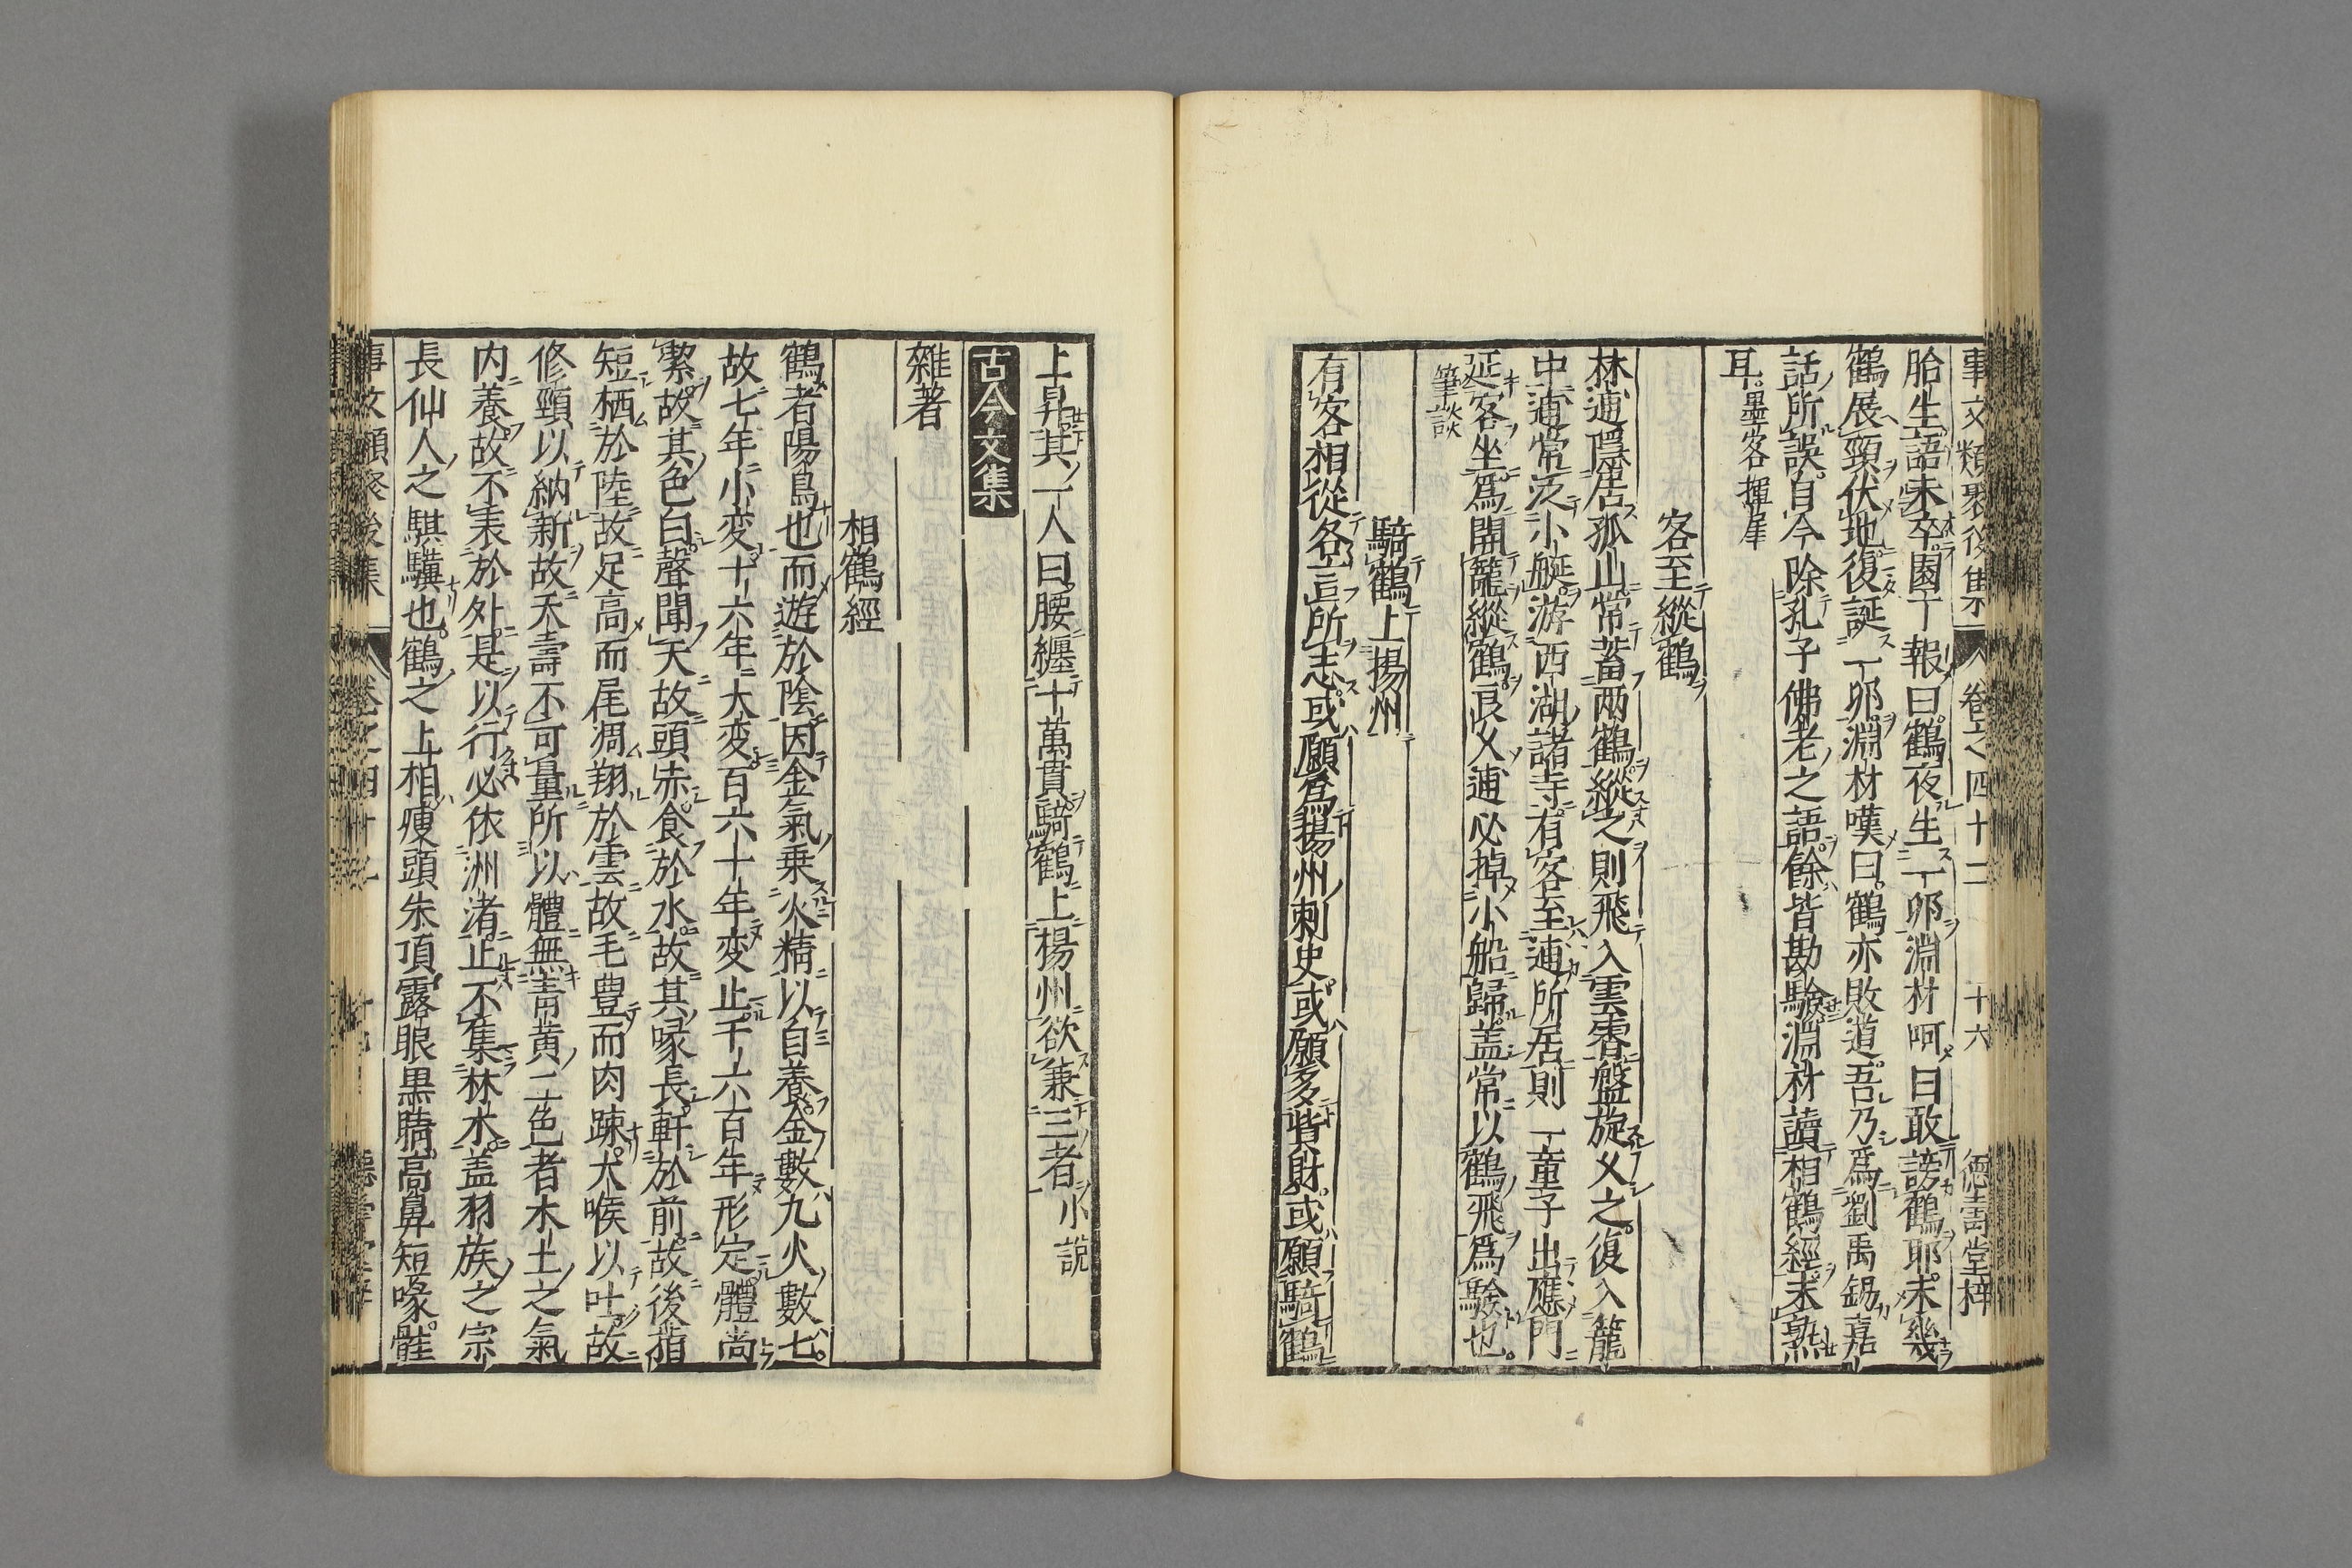 事文類聚後集 卷之四十二 十六 德壽堂梓
胎生語未卒園丁報曰鶴夜生一卵淵材呵曰敢謗鶴耶未幾
鶴展頸伏地復誕一卵淵材嘆曰鶴亦敗道吾乃爲劉禹錫嘉
話所誤自今除孔子佛老之語餘皆勘驗淵材讀相鶴經未熟
耳墨客揮犀
客至縱鶴
林逋隱居孤山常蓄兩鶴縱之則飛入雲霄盤旋乂之復入籠
中逋常泛小艇游西湖諸寺有客至逋所居則一童子出應門
延客坐爲開籠縱鶴良乂逋必掉小船歸盖常以鶴飛爲驗也
筆談
騎鶴上揚州
有客相從各言所志或願爲揚州刺史或願多貲財或願騎鶴
上昇其一人曰腰纏十萬貫騎鶴上揚州欲兼三者小說
古今文集
雜著
相鶴經
鶴者陽鳥也而遊於陰因金氣乗火精以自養金數九火數七
故七年小変十六年大変百六十年変止千六百年形定體尚
㓗故其色白聲聞天故頭赤食於水故其喙長軒於前故後指
短栖於陸故足高而尾凋翔於雲故毛豊而肉踈大喉以吐故
修頸以納新故天壽不可量所以體無青黃二色者木土之氣
内養故不表於外是以行必依洲渚止不集林木盖羽族之宗
長仙人之騏驥也鶴之上相瘦頭朱頂露眼黒睛高鼻短喙𩨷